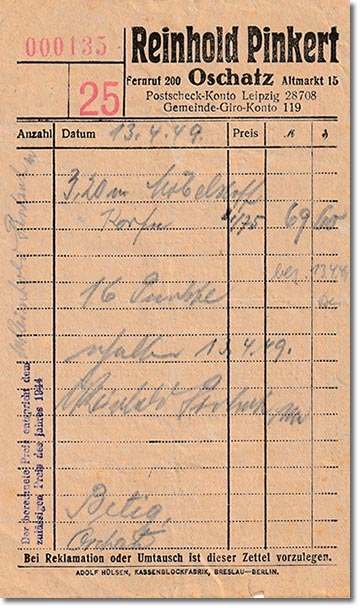 000135
25
Reinhold Pinkert
Fernruf 200 Oschatz Altmarkt 15
Postscheck-Konto Leipzig 28708
Gemeinde-Giro-Konto 119
Anzahl Datum 13.4.49. Preis M ₰
3,20 m Möbelstoff
69 60
bez. 13.4.49
16 Punkte
erhalten 13.4.49.
Der berechnete Preis entspricht dem
zulässigen Preis des Jahres 1944
Bei Reklamation oder Umtausch ist dieser Zettel vorzulegen.
ADOLF HÜLSEN, KASSENBLOCKFABRIK, BRESLAU—BERLIN.